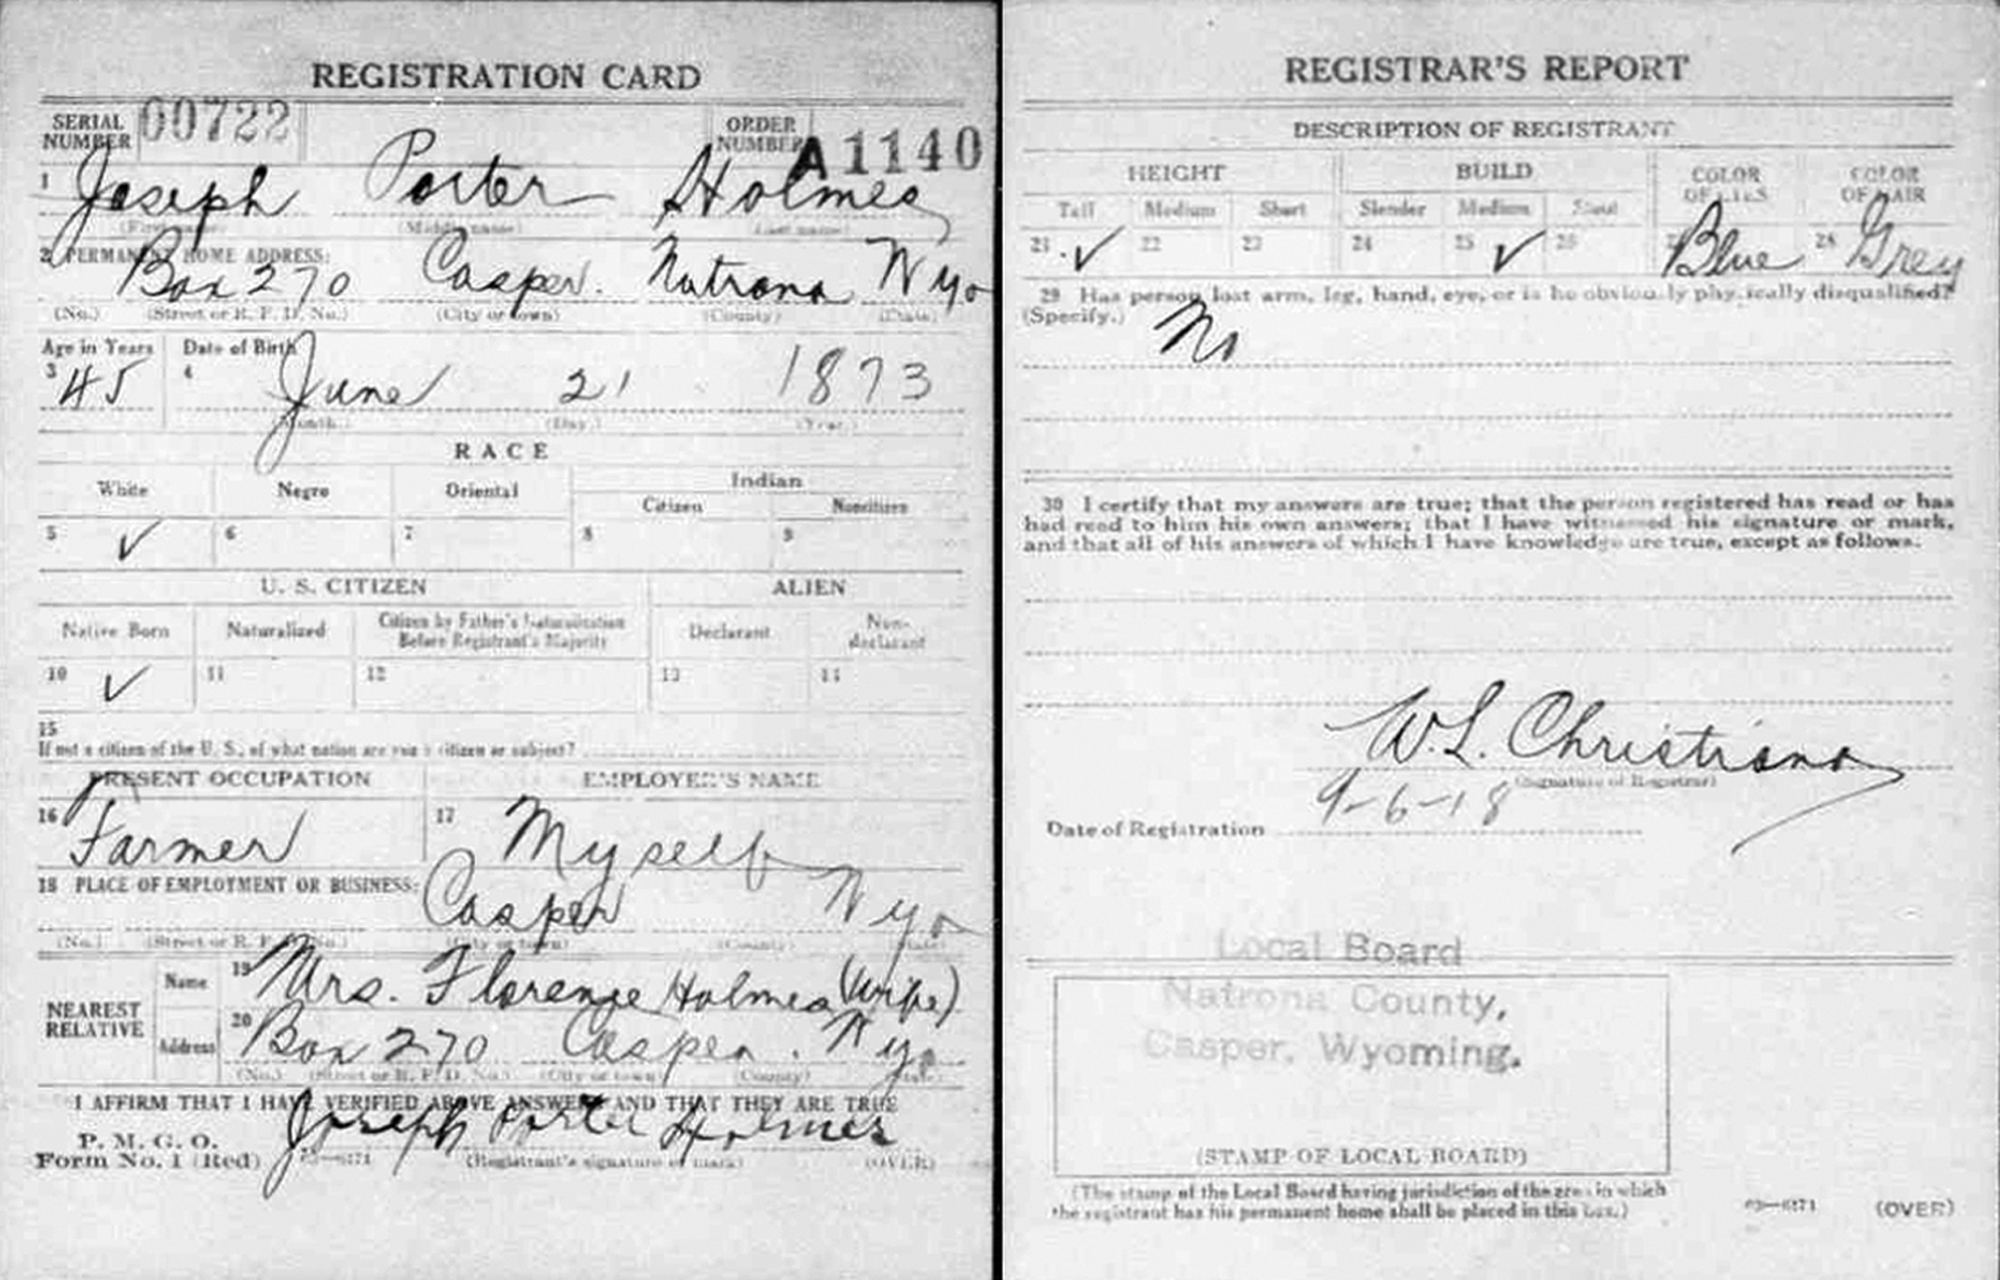 REGISTRATION CARD
SERIAL NUMBER 00722
ORDER NUMBER A1140
1 Joseph Porter Holmes
(First name) (Middle name) (Last name)
2 PERMANENT HOME ADDRESS:
Box 270 Casper. Natrona Wyo
(No.) (Street or R. F. D. No.) (City or town) (County) (State)
Age in Years Date of Birth
3 45 4 June 21 1873
(Month.) (Day.) (Year.)
RACE
White Negro Oriental Indian
Citizen Noncitizen
5 ✓ 6 7 8 9
U. S. CITIZEN ALIEN
Native Born Naturalized Citizen by Father's Naturalization Before Registrant's Majority Declarant Non-declarant
10 ✓ 11 12 13 14
15
If not a citizen of the U. S., of what nation are you a citizen or subject?
PRESENT OCCUPATION EMPLOYER'S NAME
16 Farmer 17 Myself
18 PLACE OF EMPLOYMENT OR BUSINESS:
Casper Wyo
(No.) (Street or R. F. D. No.) (City or town) (County) (State)
NEAREST RELATIVE
Name 19 Mrs. Florence Holmes (Wife)
Address 20 Box 270 Casper. Wyo
(No.) (Street or R. F. D. No.) (City or town) (County) (State)
I AFFIRM THAT I HAVE VERIFIED ABOVE ANSWERS AND THAT THEY ARE TRUE
P. M. G. O.
Form No. 1 (Red) Joseph Porter Holmes
(Registrant's signature or mark) (OVER)
REGISTRAR'S REPORT
DESCRIPTION OF REGISTRANT
HEIGHT BUILD COLOR OF EYES COLOR OF HAIR
Tall Medium Short Slender Medium Stout
21 ✓ 22 23 24 25 ✓ 26 Blue 28 Grey
29 Has person lost arm, leg, hand, eye, or is he obviously physically disqualified?
(Specify.) No
30 I certify that my answers are true; that the person registered has read or has
had read to him his own answers; that I have witnessed his signature or mark,
and that all of his answers of which I have knowledge are true, except as follows.
W. L. Christiana
(Signature of Registrar)
Date of Registration 9-6-18
Local Board
Natrona County,
Casper, Wyoming.
(STAMP OF LOCAL BOARD)
(The stamp of the Local Board having jurisdiction of the area in which
the registrant has his permanent home shall be placed in this box.)
(OVER)